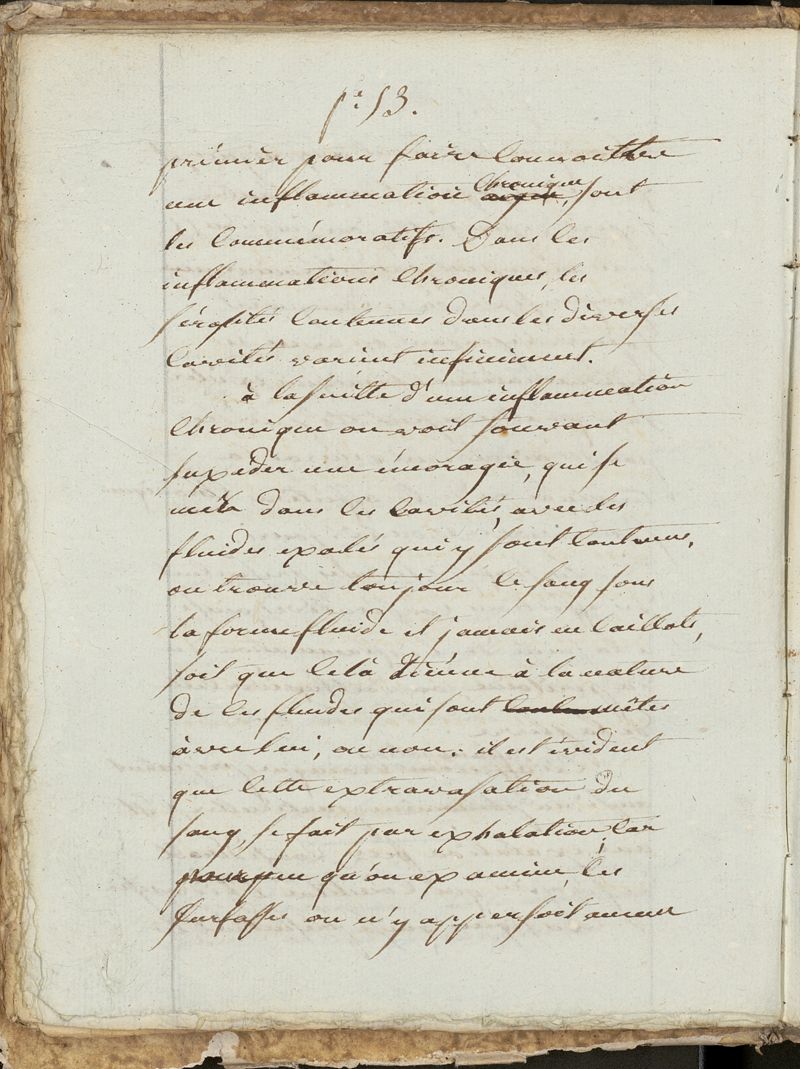 pe. 53.
prémiér pour faire connoittre
une inflammation chronique aigue, sont
les commémoratifs. Dans les
inflammations chroniques, les
sérosités contenues dans les diverses
cavités varient infiniment.
à la suitte d'une inflammation
chronique on voit souvant
suxéder une émoragie, qui se
mêle dans les cavités, avec les
fluides exalés qui y sont contenus,
on trouve toujour le sang sous
la forme fluide et jamais en caillots,
soit que cela tiénne à la nature
de ces fluides qui sont mêlés
avec lui, ou non. il est évident
que cette extravasation du
sang, se fait par exhalation, car
pourque qu'on examine les
surfasses on n'y appersoit aucune